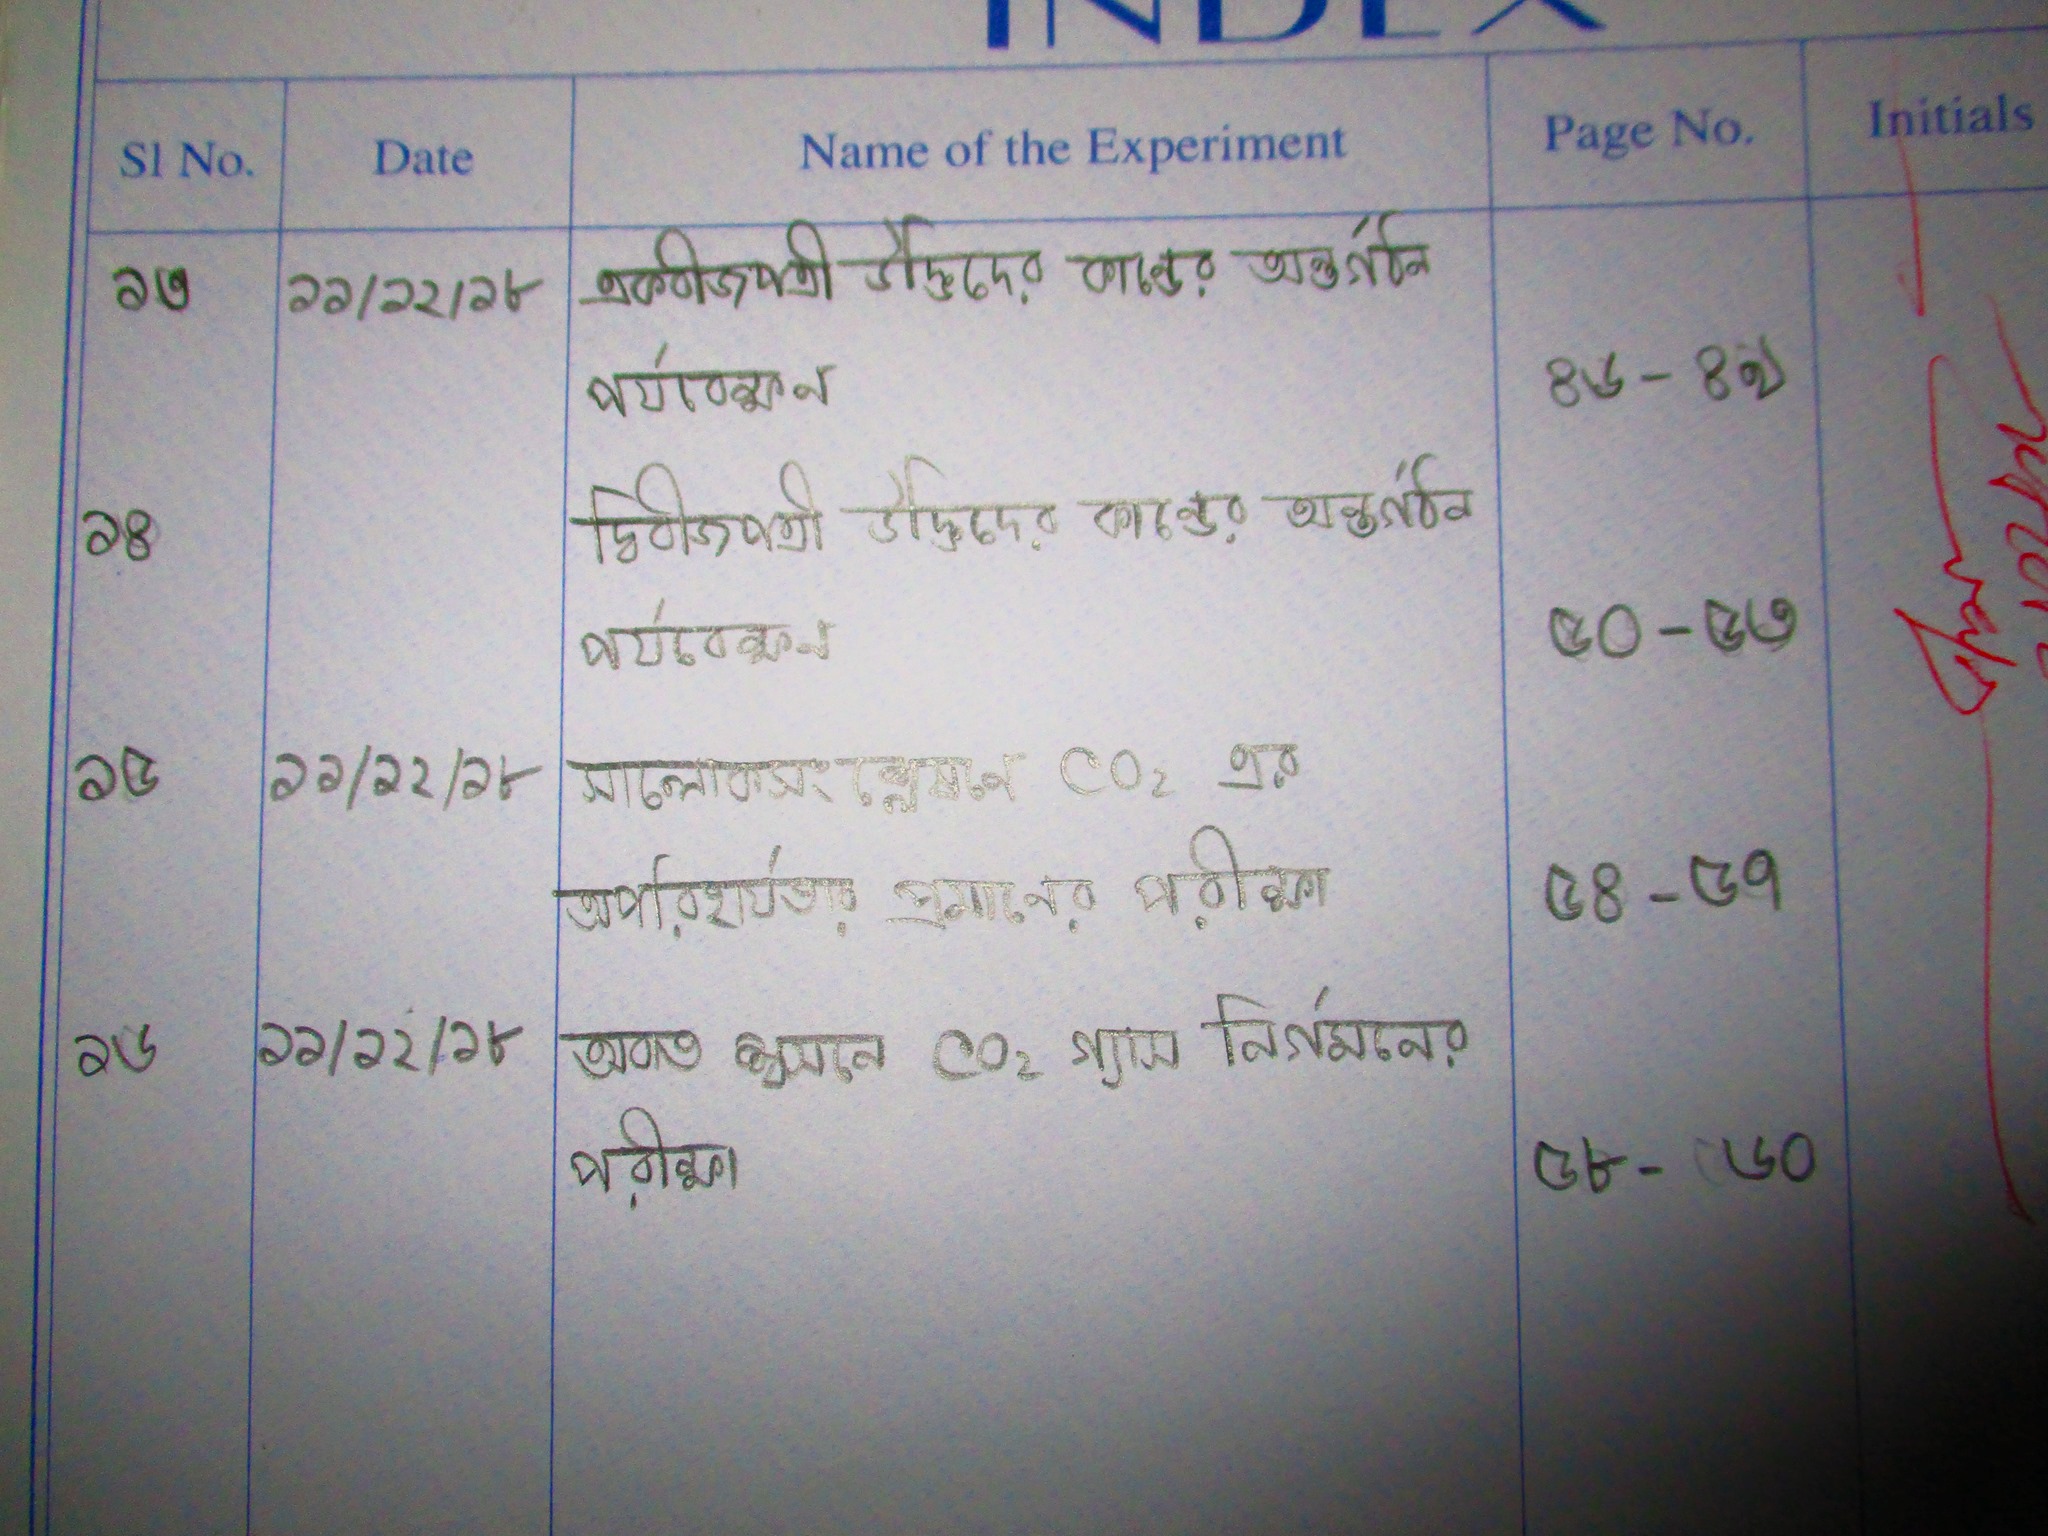 INDEX
Sl No. Date Name of the Experiment Page No. Initials
১৩ ১১/১২/১৮ একবীজপত্রী উদ্ভিদের কান্ডের অন্তর্গঠন
পর্যবেক্ষন ৪৬ - ৪৯
১৪ দ্বিবীজপত্রী উদ্ভিদের কান্ডের অন্তর্গঠন
পর্যবেক্ষন ৫০ - ৫৩
১৫ ১১/১২/১৮ সালোকসংশ্লেষনে CO₂ এর
অপরিহার্যতার প্রমানের পরীক্ষা ৫৪ - ৫৭
১৬ ১১/১২/১৮ অবাত শ্বসনে CO₂ গ্যাস নির্গমনের
পরীক্ষা ৫৮ - ৬০